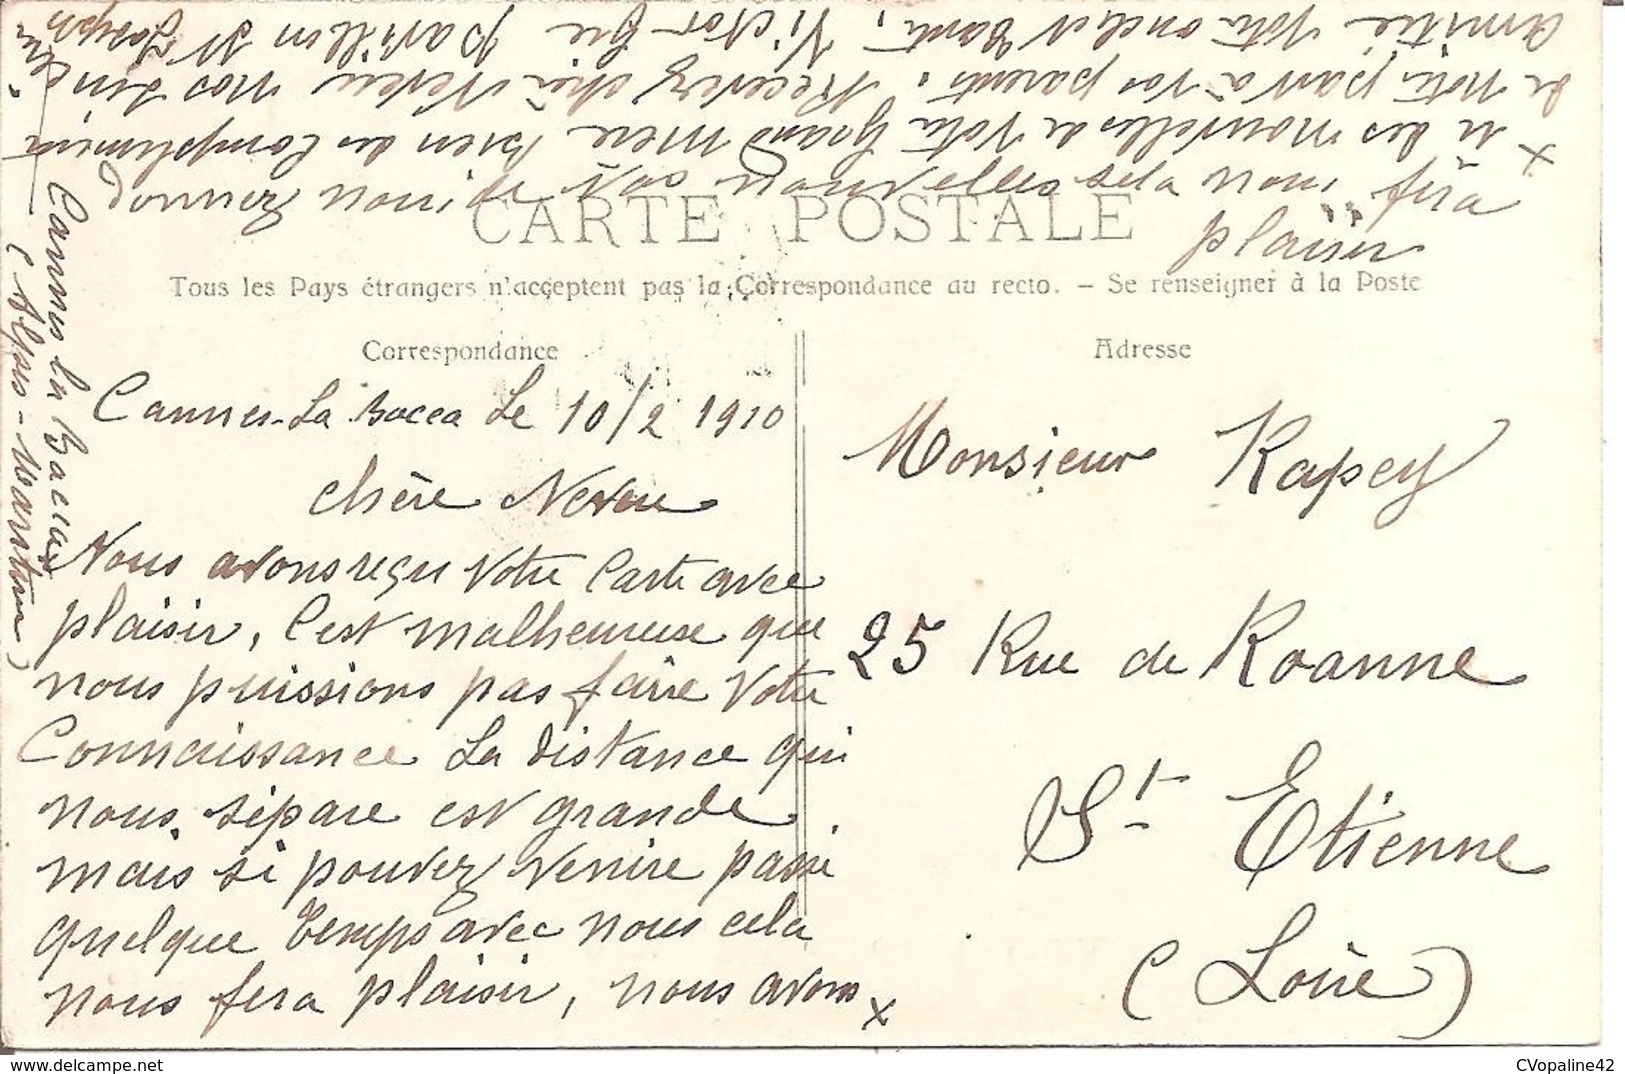 CARTE POSTALE
Tous les Pays étrangers n'acceptent pas la Correspondance au recto. - Se renseigner à la Poste
Correspondance
Cannes-La Bocca Le 10/2 1910
chère Neveu
Nous avons reçu Votre Carte avec
plaisir, C'est malheureuse que
nous puissions pas faire Votre
Connaissance La distance qui
nous sépare est grande
mais si pouvez venire passé
quelque temps avec nous cela
nous fera plaisir, nous avons x
x u des nouvelles de Votre Grand mère bien des Compliment
de Notre part à Vos parents. Recevez chèr Neveu nos sincère
amitié Votre oncle et tante, Victor Pavillon St Joseph
Cannes la Bocca
(Alpes-Maritimes)
Donnez nous de Vos nouvelles cela nous fera
plaisir
Adresse
Monsieur Rapey
25 Rue de Roanne
St Etienne
(Loire)
CVopaline42